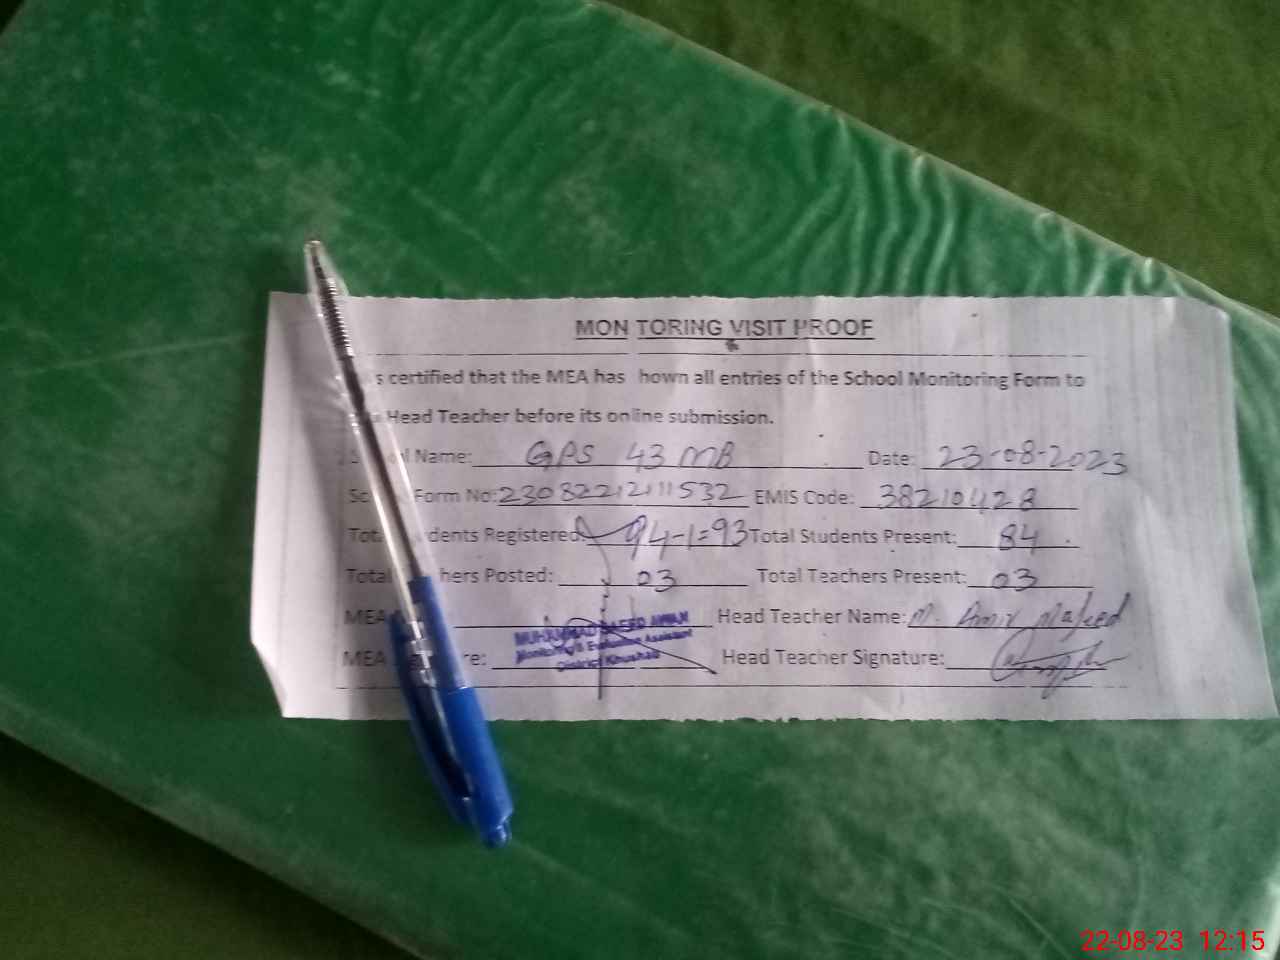 MON TORING VISIT PROOF
s certified that the MEA has hown all entries of the School Monitoring Form to
Head Teacher before its online submission.
Name: GPS 43 MB Date: 23-08-2023
Form No: EMIS Code: 38210428
dents Registered: 94-1=93 Total Students Present: 84
Total hers Posted: 03 Total Teachers Present: 03
MEA Head Teacher Name: M. Amir Majeed
MUHAMMAD SAEED AWAN
Monitoring & Evaluation Assistant
District Khushab
MEA re: Head Teacher Signature:
22-08-23 12:15